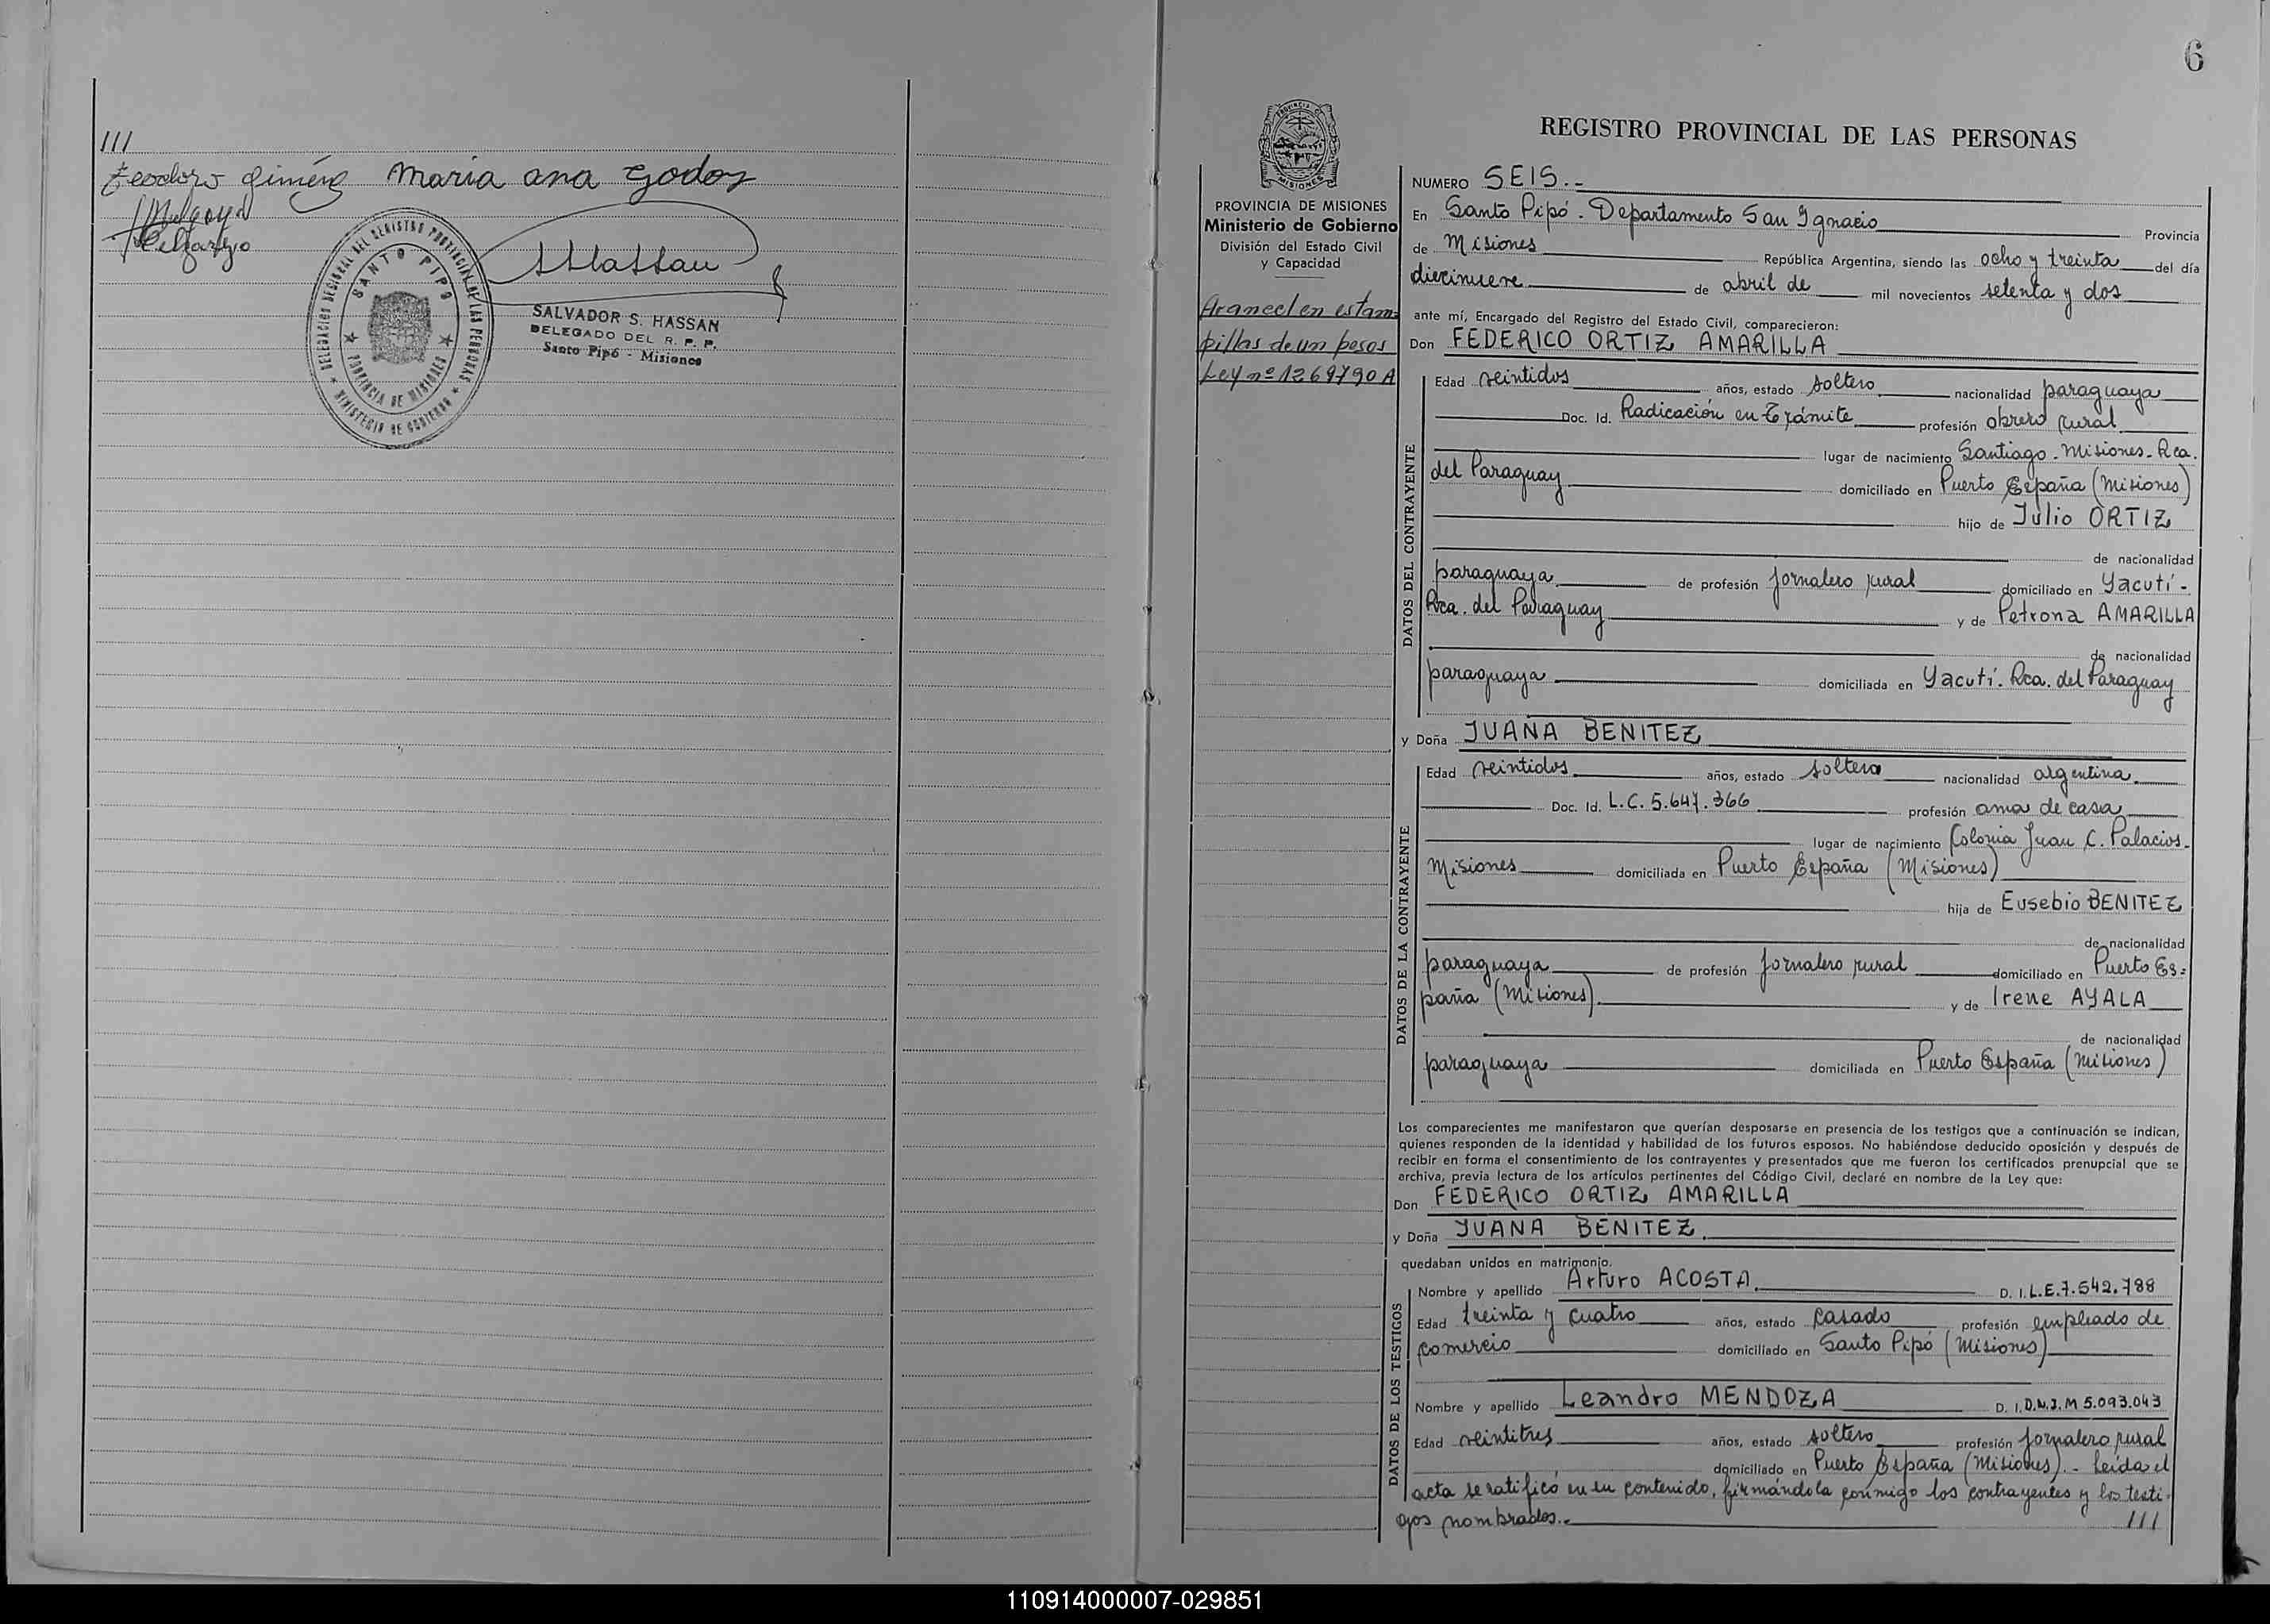 ///
Teodoro Giménez Maria ana Godoy
DELEGACION REGIONAL DEL REGISTRO PROVINCIAL DE LAS PERSONAS
★ MINISTERIO DE GOBIERNO ★
SANTO PIPO
★ PROVINCIA DE MISIONES ★
SALVADOR S. HASSAN
DELEGADO DEL R. P. P.
Santo Pipó - Misiones
6
PROVINCIA DE
MISIONES
REGISTRO PROVINCIAL DE LAS PERSONAS
PROVINCIA DE MISIONES
Ministerio de Gobierno
División del Estado Civil
y Capacidad
Arancel en estam-
pillas de un pesos
Ley nº 1269790 A
NUMERO SEIS.-
En Santo Pipó. Departamento San Ignacio Provincia
de Misiones República Argentina, siendo las ocho y treinta del día
diecinueve de abril de mil novecientos setenta y dos
ante mí, Encargado del Registro del Estado Civil, comparecieron:
Don FEDERICO ORTIZ AMARILLA
DATOS DEL CONTRAYENTE
Edad veintidos años, estado soltero nacionalidad paraguaya
Doc. Id. Radicación en trámite profesión obrero rural
lugar de nacimiento Santiago. Misiones. Rca.
del Paraguay domiciliado en Puerto España (Misiones)
hijo de Julio ORTIZ
de nacionalidad
paraguaya de profesión jornalero rural domiciliado en Yacutí-
Rca. del Paraguay y de Petrona AMARILLA
de nacionalidad
paraguaya domiciliada en Yacutí. Rca. del Paraguay
y Doña JUANA BENITEZ
DATOS DE LA CONTRAYENTE
Edad veintidos años, estado soltera nacionalidad argentina
Doc. Id. L.C. 5.647.366 profesión ama de casa
lugar de nacimiento Colonia Juan C. Palacios-
Misiones domiciliada en Puerto España (Misiones)
hija de Eusebio BENITEZ
de nacionalidad
paraguaya de profesión jornalero rural domiciliado en Puerto Es-
paña (Misiones). y de Irene AYALA
de nacionalidad
paraguaya domiciliada en Puerto España (Misiones)
Los comparecientes me manifestaron que querían desposarse en presencia de los testigos que a continuación se indican,
quienes responden de la identidad y habilidad de los futuros esposos. No habiéndose deducido oposición y después de
recibir en forma el consentimiento de los contrayentes y presentados que me fueron los certificados prenupcial que se
archiva, previa lectura de los artículos pertinentes del Código Civil, declaré en nombre de la Ley que:
Don FEDERICO ORTIZ AMARILLA
y Doña JUANA BENITEZ.
quedaban unidos en matrimonio.
DATOS DE LOS TESTIGOS
Nombre y apellido Arturo ACOSTA. D. I. L.E.7.542.788
Edad treinta y cuatro años, estado casado profesión empleado de
comercio domiciliado en Santo Pipó (Misiones)
Nombre y apellido Leandro MENDOZA D. I. D.N.I. M 5.093.043
Edad veintitres años, estado soltero profesión jornalero rural
domiciliado en Puerto España (Misiones).- Leída el
acta se ratificó en su contenido, firmándola conmigo los contrayentes y los testi-
gos nombrados.- ///
110914000007-029851